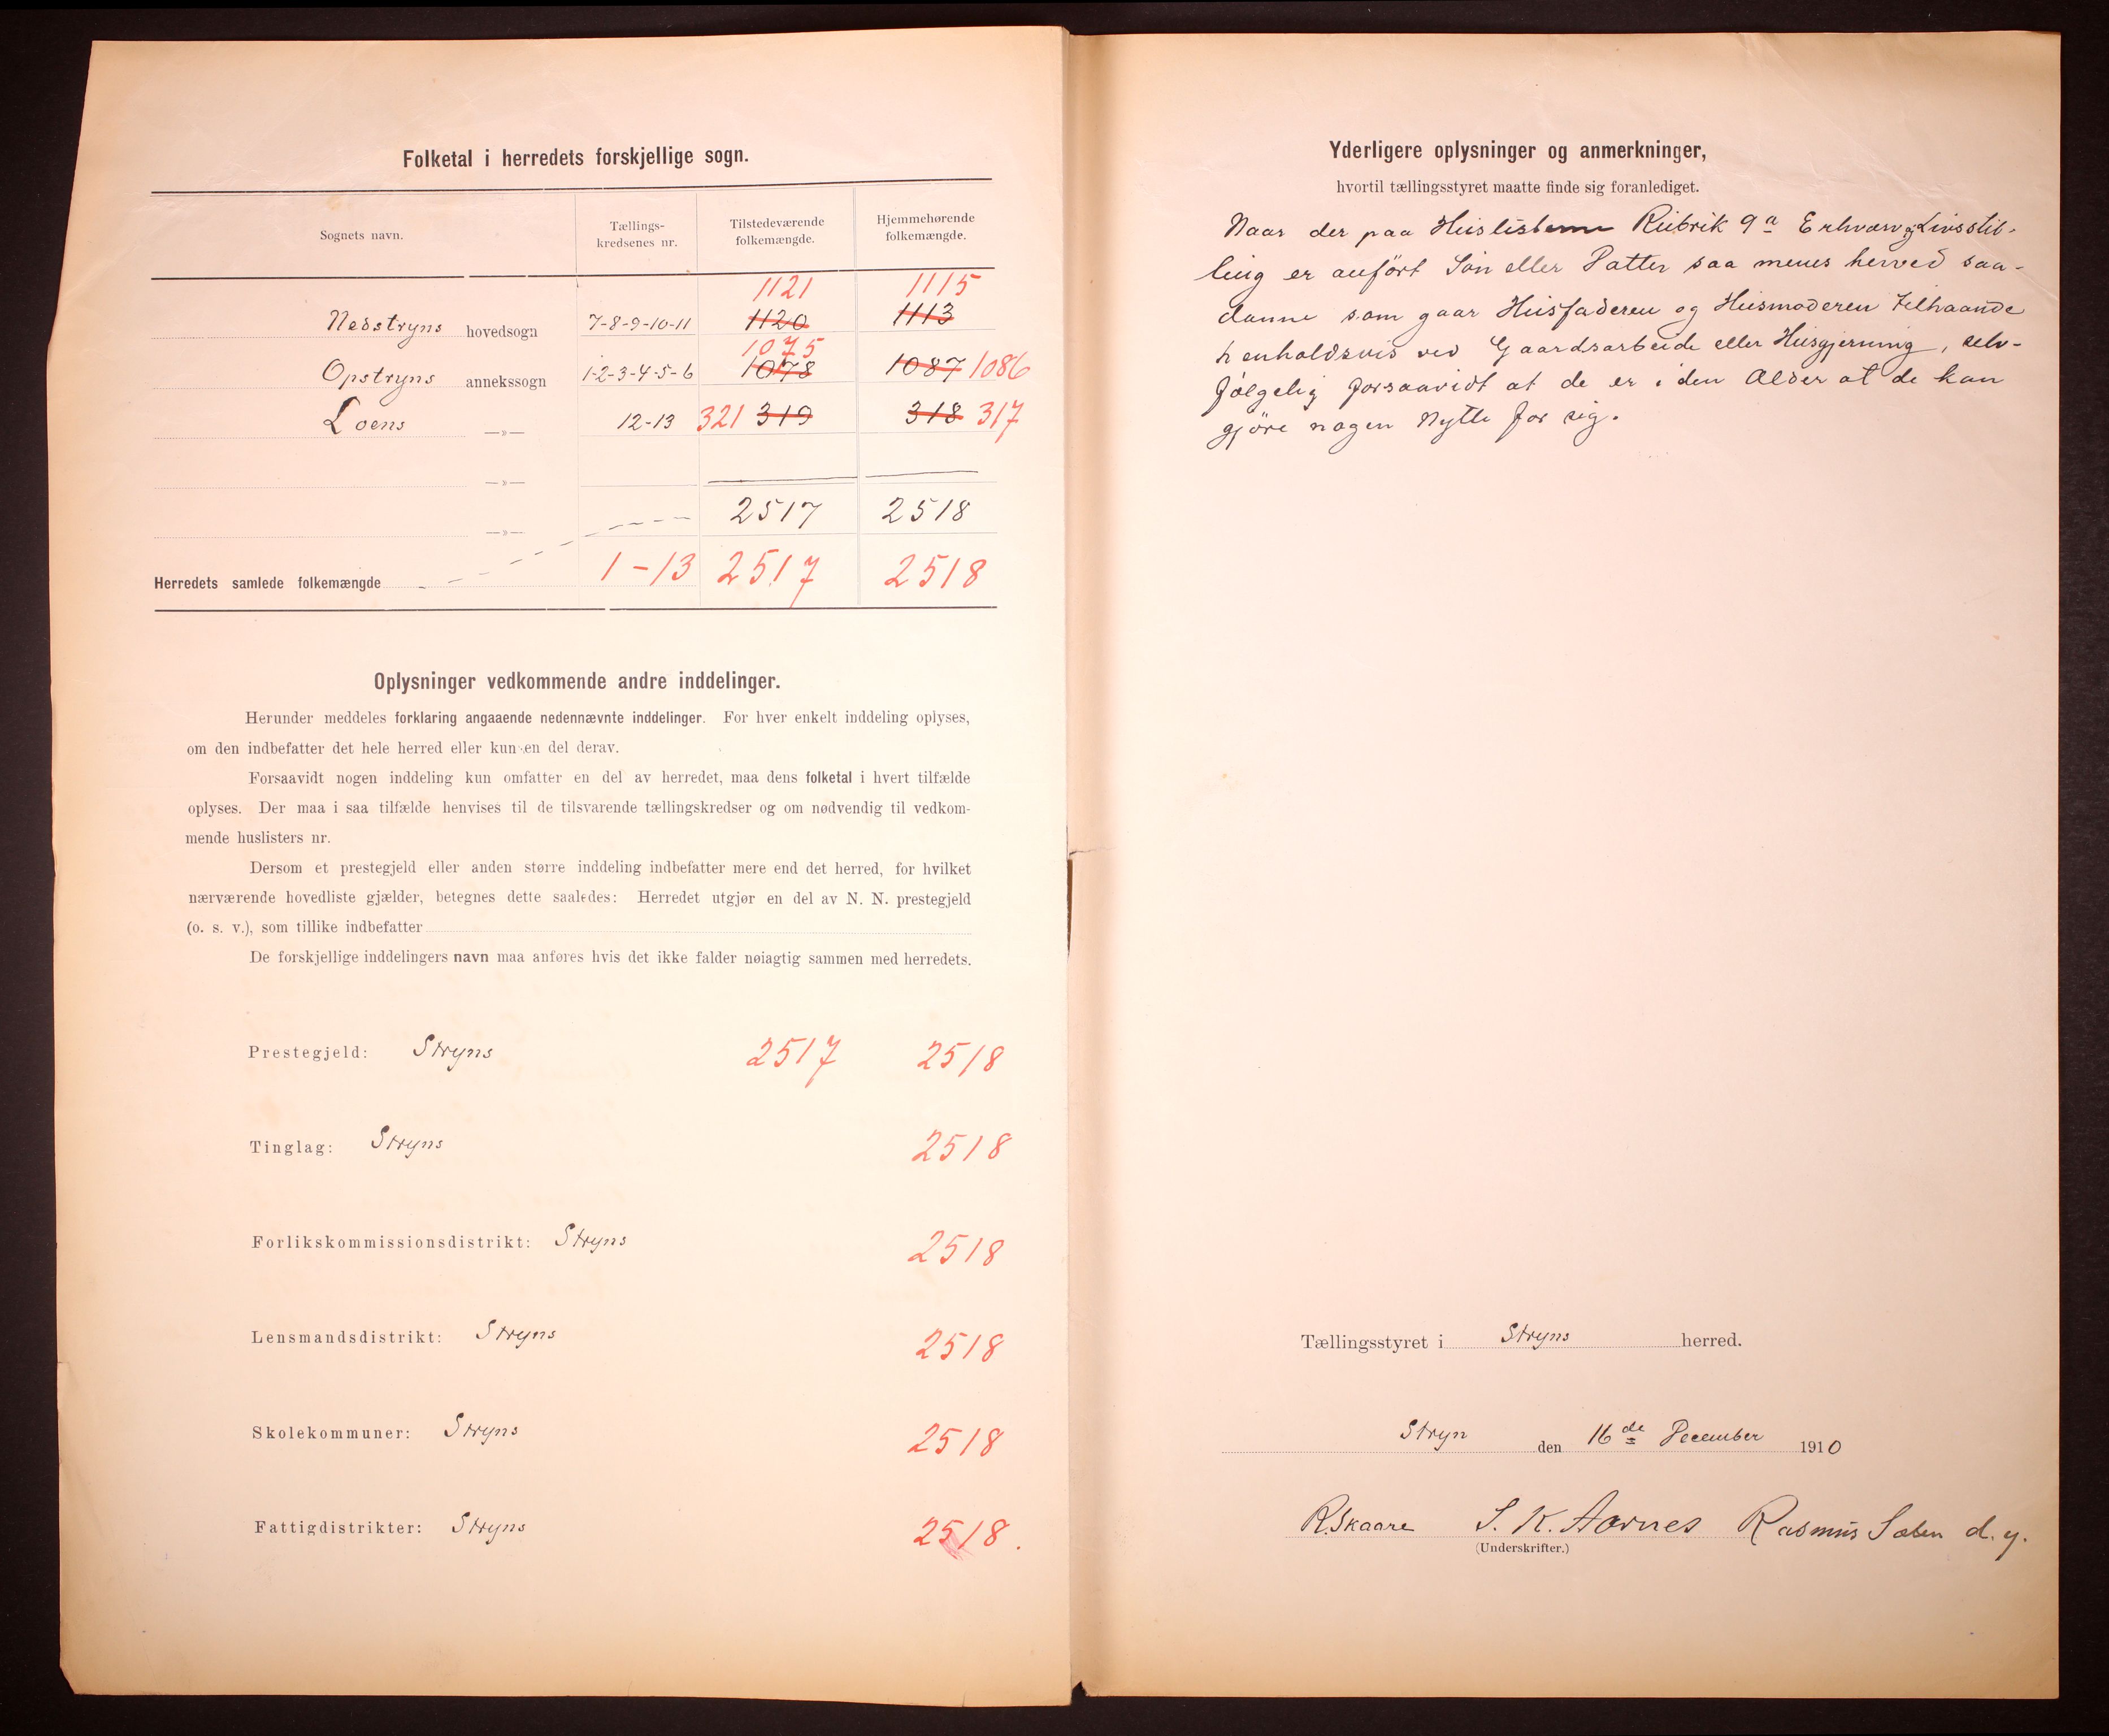 Folketal i herredets forskjellige sogn.
Sognets navn. Tællings-kredsenes nr. Tilstedeværende folkemængde. Hjemmehørende folkemængde.
1121 1115
Nedstryns hovedsogn 7-8-9-10-11 1120 1113
1075
Opstryns annekssogn 1-2-3-4-5-6 1078 1087 1086
Loens —»— 12-13 321 319 318 317
—»—
—»— 2517 2518
Herredets samlede folkemængde 1-13 2517 2518
Oplysninger vedkommende andre inddelinger.
Herunder meddeles forklaring angaaende nedennævnte inddelinger. For hver enkelt inddeling oplyses,
om den indbefatter det hele herred eller kun en del derav.
Forsaavidt nogen inddeling kun omfatter en del av herredet, maa dens folketal i hvert tilfælde
oplyses. Der maa i saa tilfælde henvises til de tilsvarende tællingskredser og om nødvendig til vedkom-
mende huslisters nr.
Dersom et prestegjeld eller anden større inddeling indbefatter mere end det herred, for hvilket
nærværende hovedliste gjælder, betegnes dette saaledes: Herredet utgjør en del av N. N. prestegjeld
(o. s. v.), som tillike indbefatter
De forskjellige inddelingers navn maa anføres hvis det ikke falder nøiagtig sammen med herredets.
Prestegjeld: Stryns 2517 2518
Tinglag: Stryns 2518
Forlikskommissionsdistrikt: Stryns 2518
Lensmandsdistrikt: Stryns 2518
Skolekommuner: Stryns 2518
Fattigdistrikter: Stryns 2518.
Yderligere oplysninger og anmerkninger,
hvortil tællingsstyret maatte finde sig foranlediget.
Naar der paa Huslisterne Rubrik 9a Erhværv og Livsstil-
ling er anført Søn eller Datter saa menes herved saa-
danne som gaar Husfaderen og Husmoderen tilhaande
henholdsvis ved Gaardsarbeide eller Husgjerning, selv-
følgelig forsaavidt at de er i den Alder at de kan
gjøre nogen Nytte for sig.
Tællingsstyret i Stryns herred.
Stryn den 16de December 1910
R. Skaare S. K. Aarnes Rasmus d. y.
(Underskrifter.)